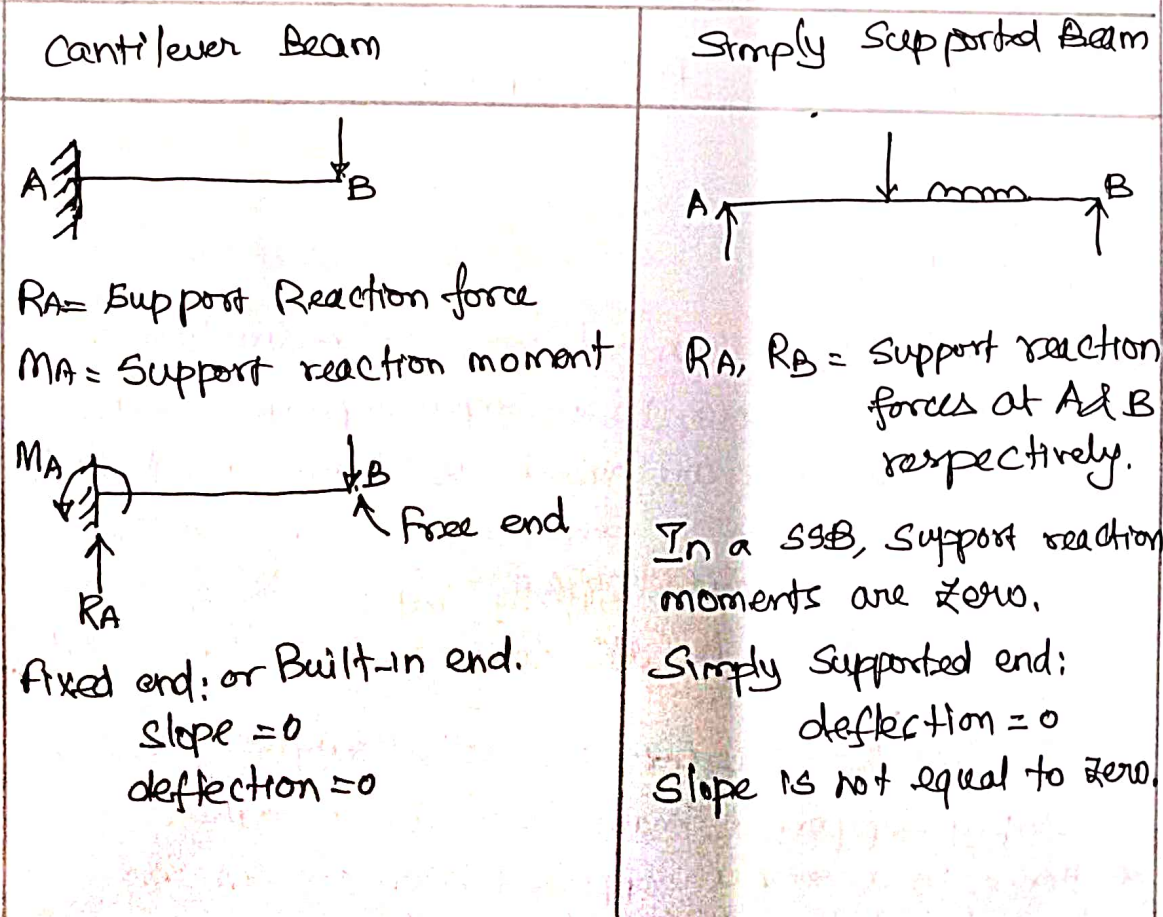 Cantilever Beam
A
B
RA= Support Reaction force
MA= Support reaction moment
MA
B
Free end
RA
fixed end: or Built-in end.
slope =0
deflection =0
Simply Supported Beam
A
B
RA, RB = Support reaction
forces at A & B
respectively.
In a SSB, Support reaction
moments are zero.
Simply Supported end:
deflection =0
Slope is not equal to zero.